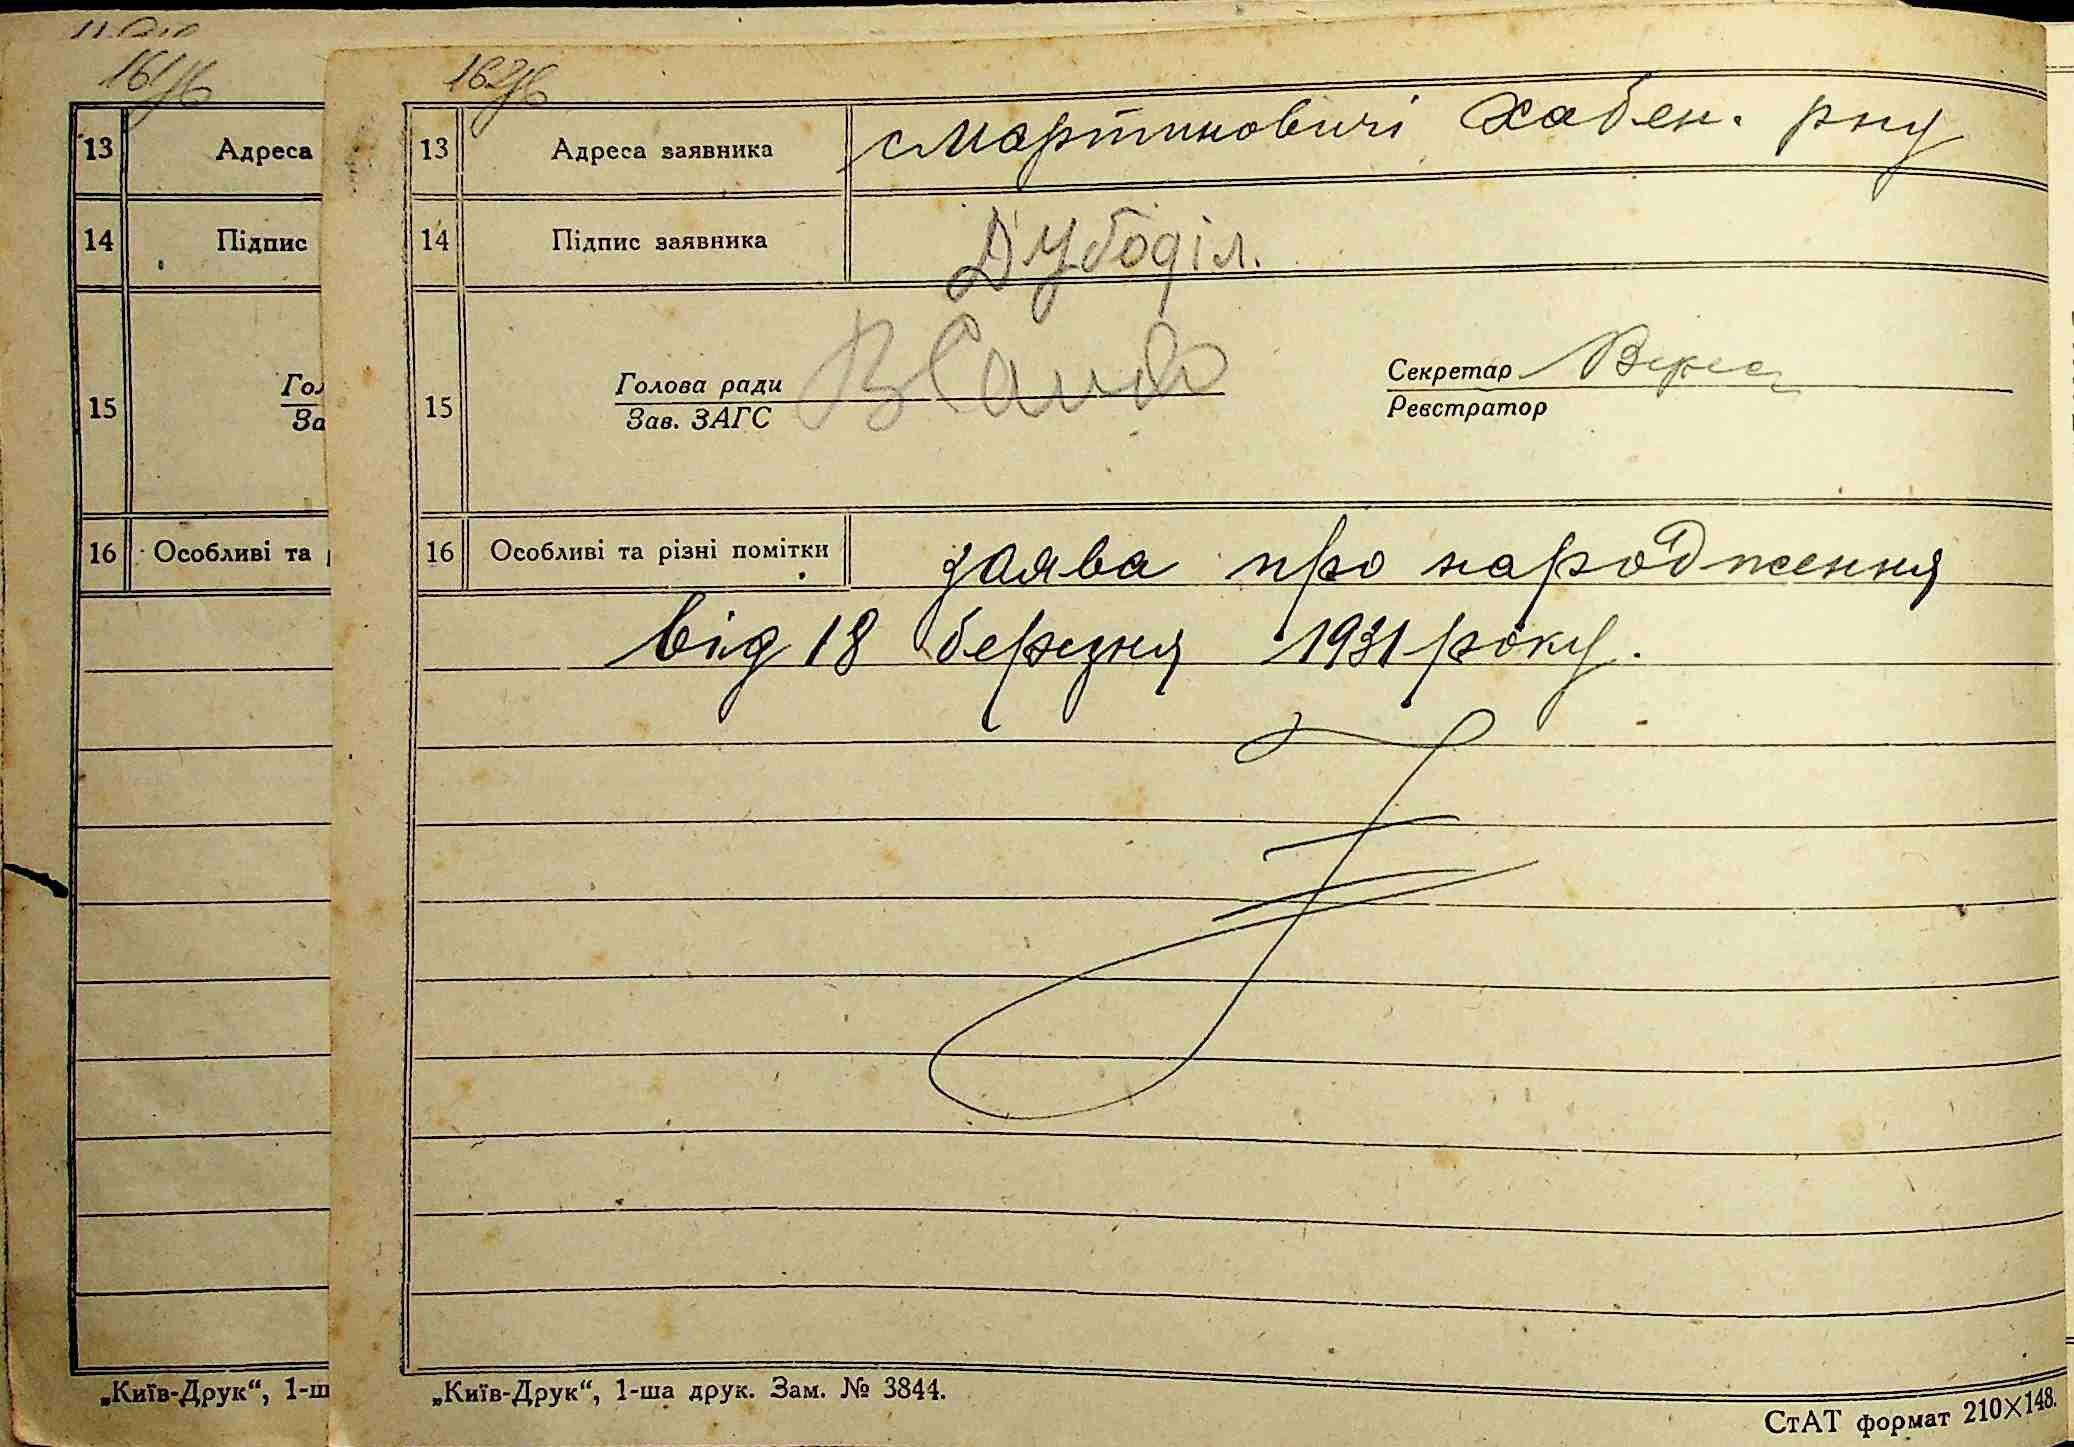 161
162
13 Адреса
14 Підпис
15
16 Особливі та
„Київ-Друк“, 1-ш
13 Адреса заявника смартиновичі Хабен. рну
14 Підпис заявника Дубоділ.
15 Голова ради Секретар
Зав. ЗАГС Реєстратор
16 Особливі та різні помітки заява про народження
від 18 березня 1931 року.
„Київ-Друк“, 1-ша друк. Зам. № 3844.
СтАТ формат 210×148.